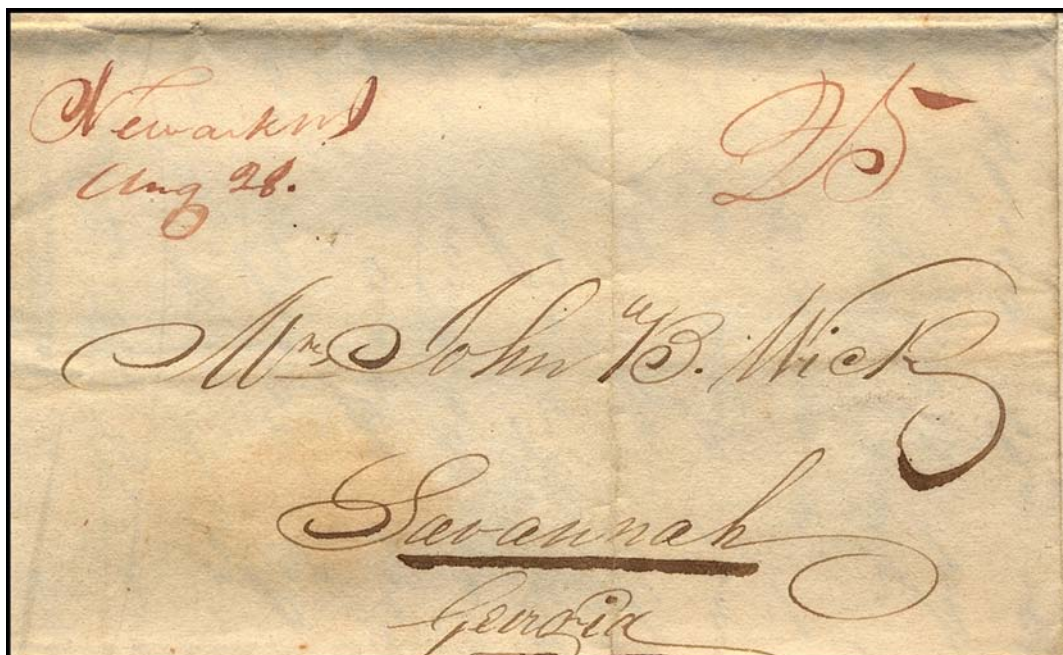 Newark NJ
25
Aug 28.
Mr. John B. Wick
Savannah
Georgia